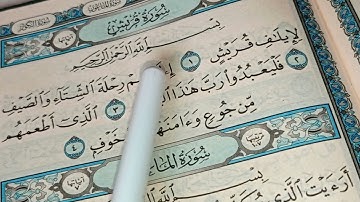 سُورَةُ قُرَيْشٍ
بِسْمِ اللَّهِ الرَّحْمَٰنِ الرَّحِيمِ
لِإِيلَٰفِ قُرَيْشٍ ١ رِحْلَةَ الشِّتَاءِ وَالصَّيْفِ
٢ فَلْيَعْبُدُوا رَبَّ هَٰذَا ٣ الَّذِي أَطْعَمَهُم
مِّن جُوعٍ وَءَامَنَهُم خَوْفٍ ٤
سُورَةُ
بِسْمِ اللَّهِ
أَرَءَيْتَ الَّذِي